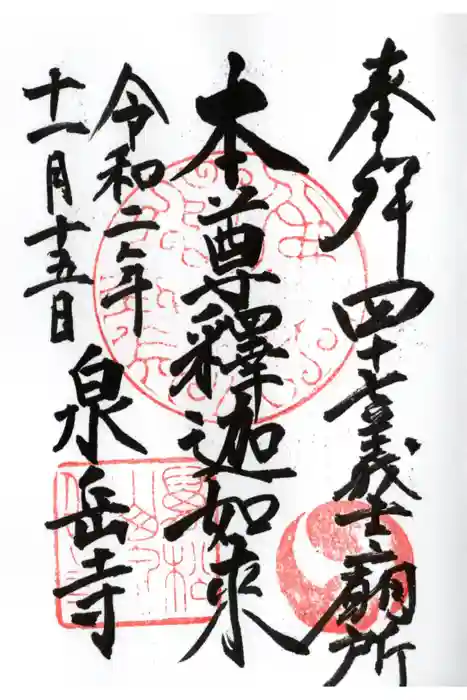 奉拝 四十七義士之廟所
本尊釋迦如來
令和二年
十一月十五日
泉岳寺